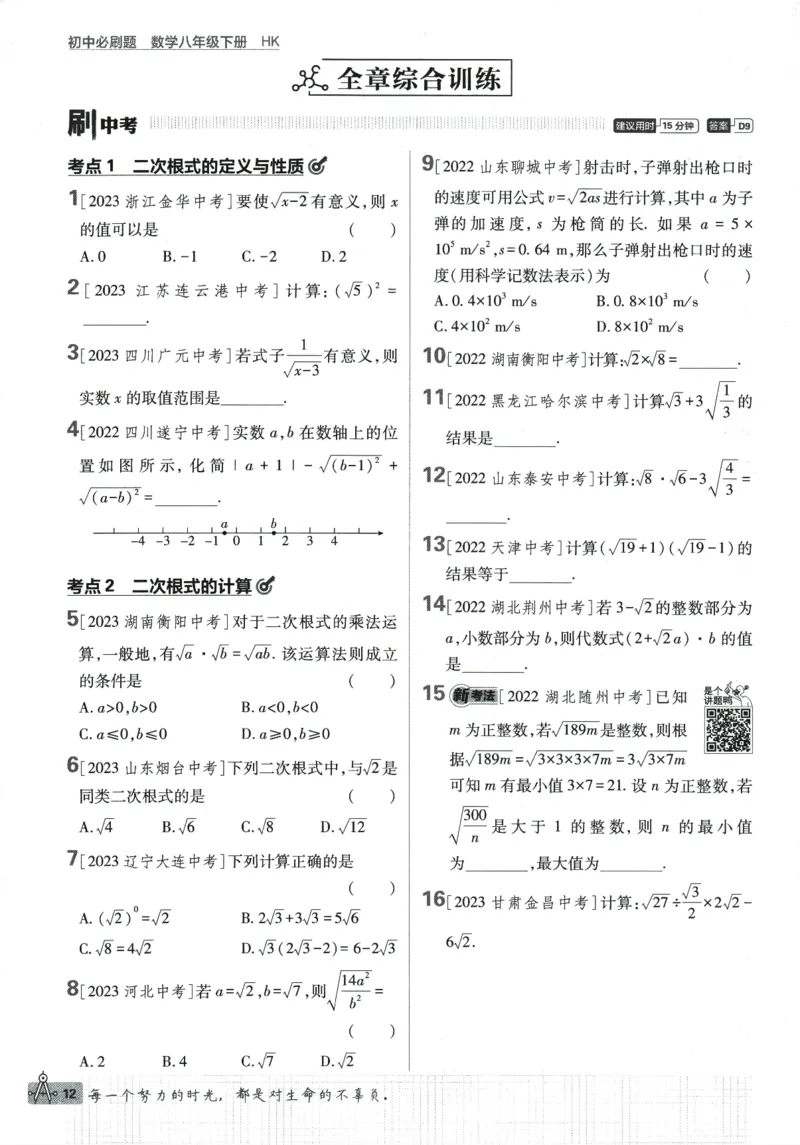 初中必刷题 数学八年级下册 HK
全章综合训练
刷中考
建议用时 15分钟 答案 D9
考点1 二次根式的定义与性质
1[2023浙江金华中考]要使√(x-2)有意义,则x
的值可以是 ( )
A.0 B.-1 C.-2 D.2
2[2023江苏连云港中考]计算:(√5)²=
________.
3[2023四川广元中考]若式子1/√(x-3)有意义,则
实数x的取值范围是________.
4[2022四川遂宁中考]实数a,b在数轴上的位
置如图所示,化简|a+1|-√((b-1)²)+
√((a-b)²)=________.
a b
-4 -3 -2 -1 0 1 2 3 4
考点2 二次根式的计算
5[2023湖南衡阳中考]对于二次根式的乘法运
算,一般地,有√a·√b=√(ab).该运算法则成立
的条件是 ( )
A.a>0,b>0 B.a<0,b<0
C.a≤0,b≤0 D.a≥0,b≥0
6[2023山东烟台中考]下列二次根式中,与√2是
同类二次根式的是 ( )
A.√4 B.√6 C.√8 D.√12
7[2023辽宁大连中考]下列计算正确的是
( )
A.(√2)⁰=√2 B.2√3+3√3=5√6
C.√8=4√2 D.√3(2√3-2)=6-2√3
8[2023河北中考]若a=√2,b=√7,则√(14a²/b²)=
( )
A.2 B.4 C.√7 D.√2
9[2022山东聊城中考]射击时,子弹射出枪口时
的速度可用公式v=√(2as)进行计算,其中a为子
弹的加速度,s为枪筒的长.如果a=5×
10⁵ m/s²,s=0.64 m,那么子弹射出枪口时的速
度(用科学记数法表示)为 ( )
A.0.4×10³ m/s B.0.8×10³ m/s
C.4×10² m/s D.8×10² m/s
10[2022湖南衡阳中考]计算:√2×√8=________.
11[2022黑龙江哈尔滨中考]计算√3+3√(1/3)的
结果是________.
12[2022山东泰安中考]计算:√8·√6-3√(4/3)=
________.
13[2022天津中考]计算(√19+1)(√19-1)的
结果等于________.
14[2022湖北荆州中考]若3-√2的整数部分为
a,小数部分为b,则代数式(2+√2a)·b的值
是________.
15 新考法[2022湖北随州中考]已知
是个
讲题鸭
m为正整数,若√(189m)是整数,则根
据√(189m)=√(3×3×3×7m)=3√(3×7m)
可知m有最小值3×7=21.设n为正整数,若
√(300/n)是大于1的整数,则n的最小值
为________,最大值为________.
16[2023甘肃金昌中考]计算:√27÷√3/2×2√2-
6√2.
12 每一个努力的时光,都是对生命的不辜负.